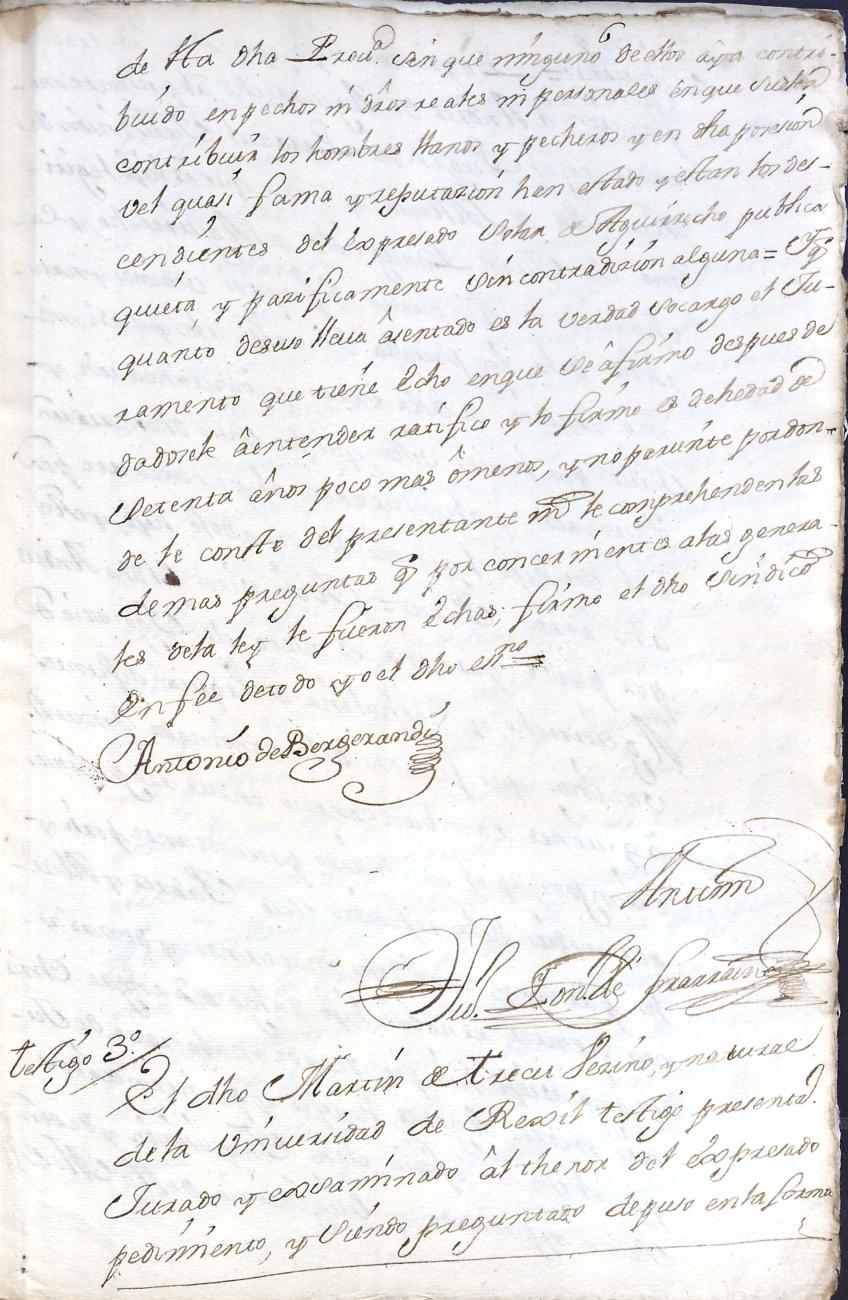 de Sta dha Prou.ª sin que ninguno de ellos aya contri-
buido en pechos ni dros reales ni personales en que suelen
contribuir los hombres llanos y pecheros y en dha posesion
vel quasi fama y reputazion han estado y estan los des-
cendientes del expresado Solar de Aguirrecho publica
quieta y pazificamente sin contradizion alguna = Y q
quanto desuso lleva asentado es la verdad so cargo el Ju-
ramento que tiene Echo en que se afirmo despues de
dadosele â entender ratifico y lo firmo es de hedad de
Setenta años poco mas ô menos, y no pariente por don-
de le conste del presentante ni le comprehenden las
demas preguntas q por concernientes a las genera-
les de la ley le fueron Echas, firmo el dho Sindico
En fee de todo yo el dho essno =
Antonio de Bergerandi
Antemi
Ju. de Ibarrazin
testigo 3.º / El dho Martin de Trecu Vezino, y natural
de la Universidad de Rexil testigo presentad.
Jurado y examinado âl thenor del expresado
pedimiento, y siendo preguntado depuso en la forma